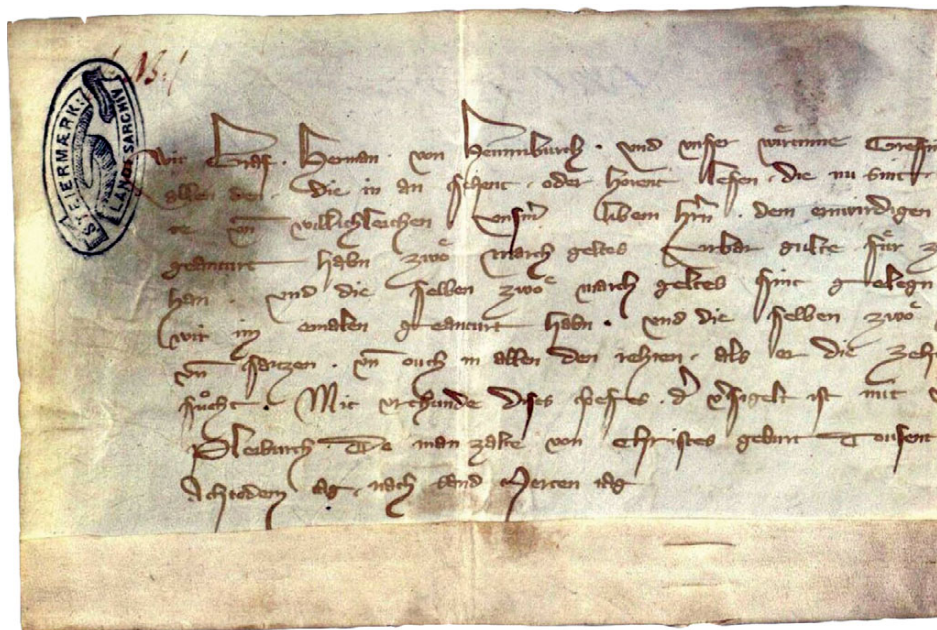 STEIERMÆRK: LANDESARCHIV
Wir Graf · Herman · von Heunnburch · vnd vnser wirtinne Gref
allen den · die in an sehent · oder horent lesen · die nu sint ·
te vn̄ willichleichen libem hrn̄ · dem erwirdigen
geantwrt habn zwo march geltes Vrbar gulte fuͤr
han · vnd die selben zwoͤ march geltes sint gelegn
wir im emalen geantwrt habn · vnd die selben zwoͤ
vn̄ satzen · vn̄ ouch in allen den rehten · als er die
suͦcht · Mit vrchunde dises v̓sigelt ist mit
Pleiburch · Do man zalte von Christes geburt Tousent
Achtodem tag · nach sand Merten tag